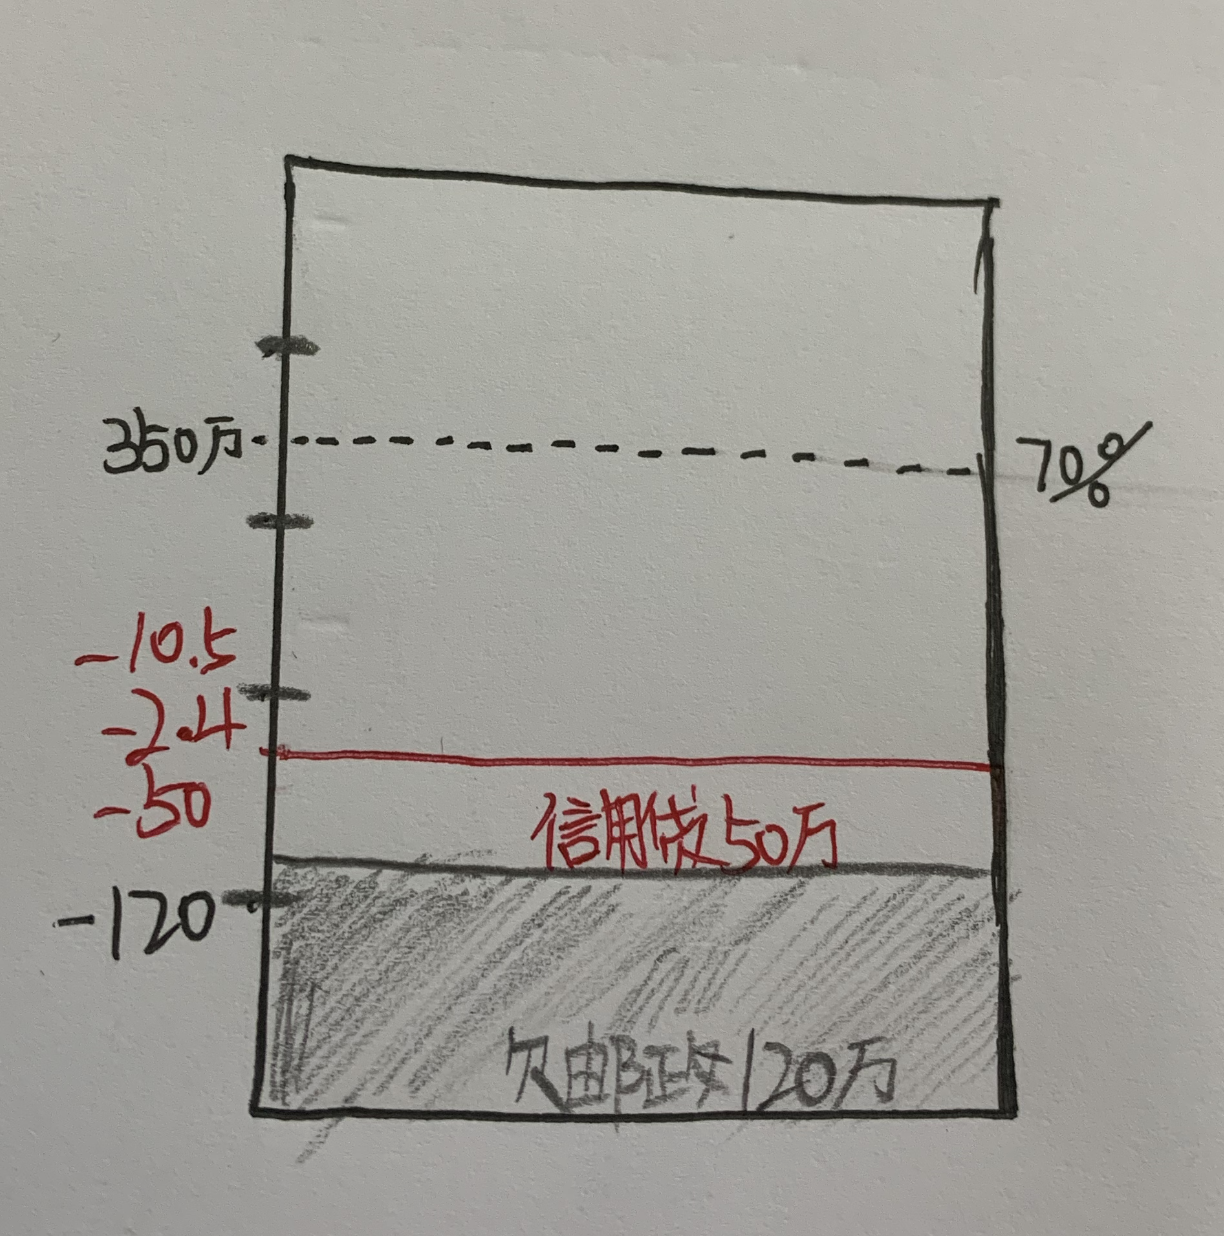 350万
70%
-10.5
-2.4
-50
信用贷50万
-120
欠邮政120万